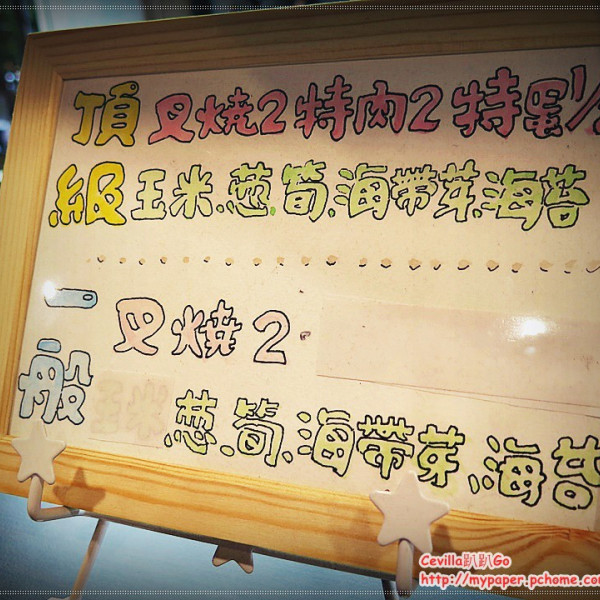 頂級
叉燒2 特肉2 特蛋1/
玉米、蔥、筍、海帶芽、海苔
一般
叉燒2
蔥、筍、海帶芽、海苔
Cevilla趴趴Go
http://mypaper.pchome.com